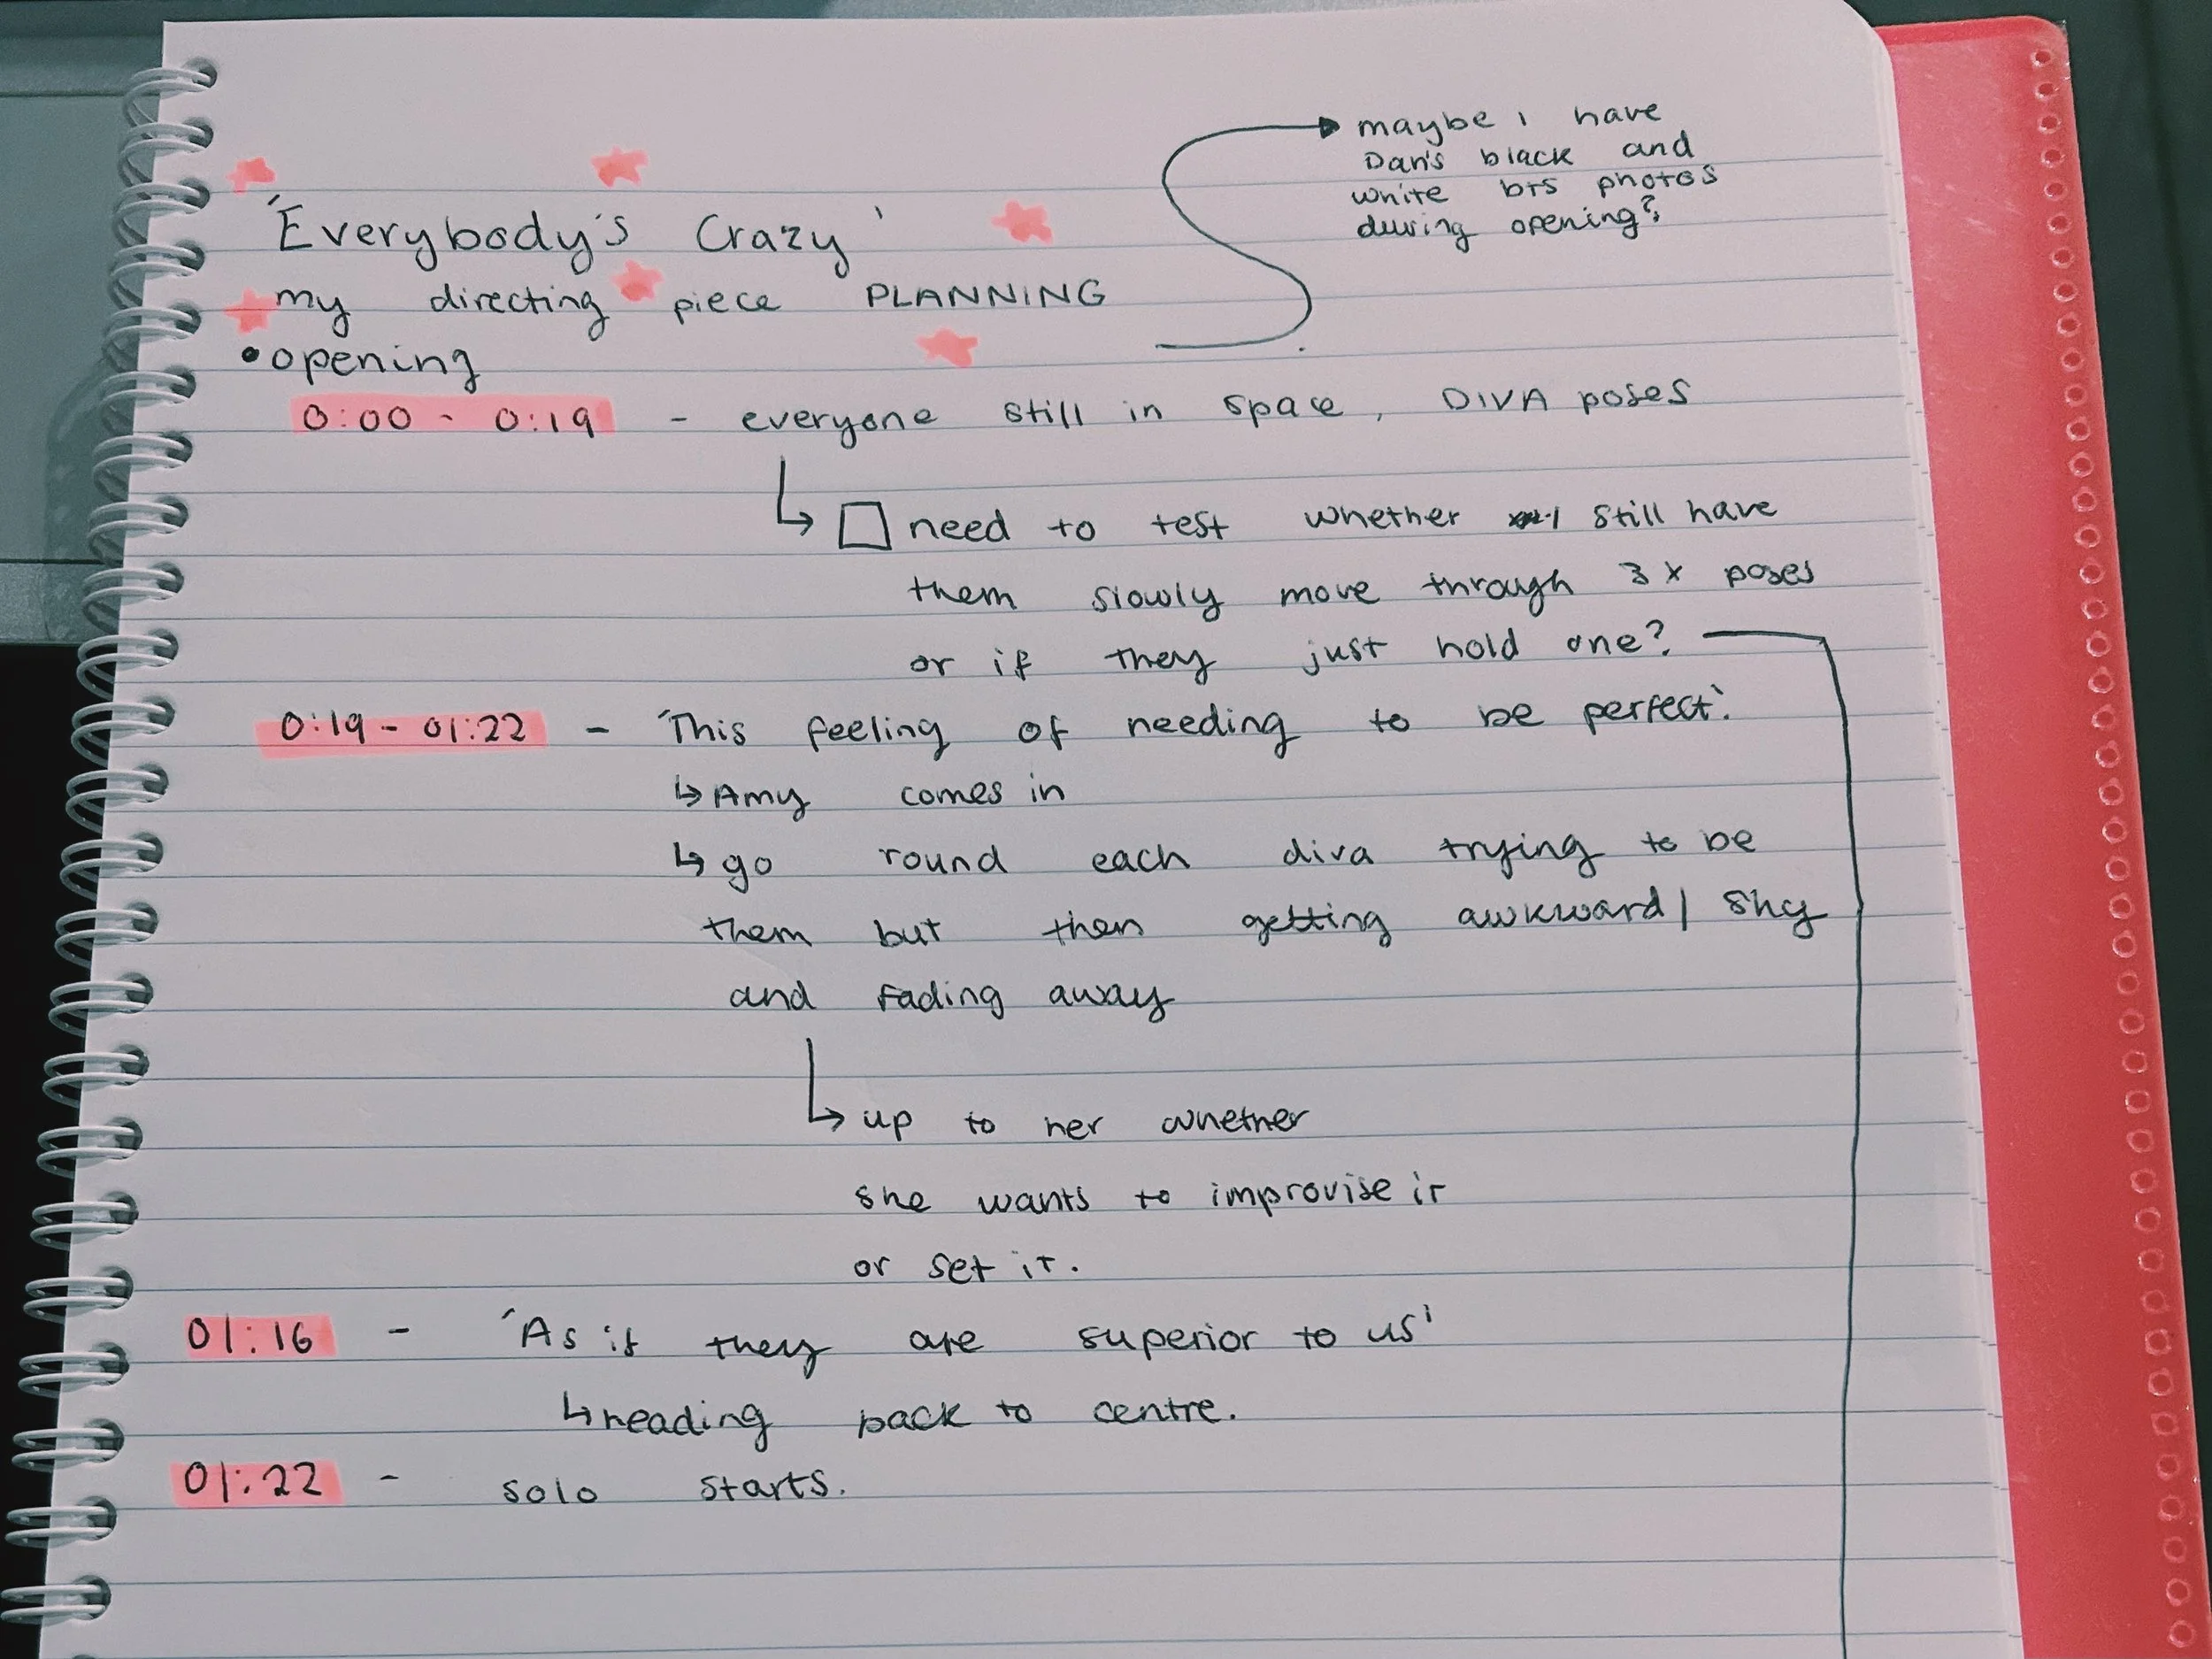 'Everybody's Crazy'
my directing piece PLANNING
• opening
maybe I have
Dan's black and
white bts photos
during opening?
0:00 - 0:19 - everyone still in space, DIVA poses
↳ □ need to test whether I still have
them slowly move through 3x poses
or if they just hold one?
0:19 - 01:22 - 'This feeling of needing to be perfect.'
↳ Amy comes in
↳ go round each diva trying to be
them but then getting awkward/shy
and fading away
↳ up to her whether
she wants to improvise it
or set it.
01:16 - 'As if they are superior to us'
↳ heading back to centre.
01:22 - solo starts.